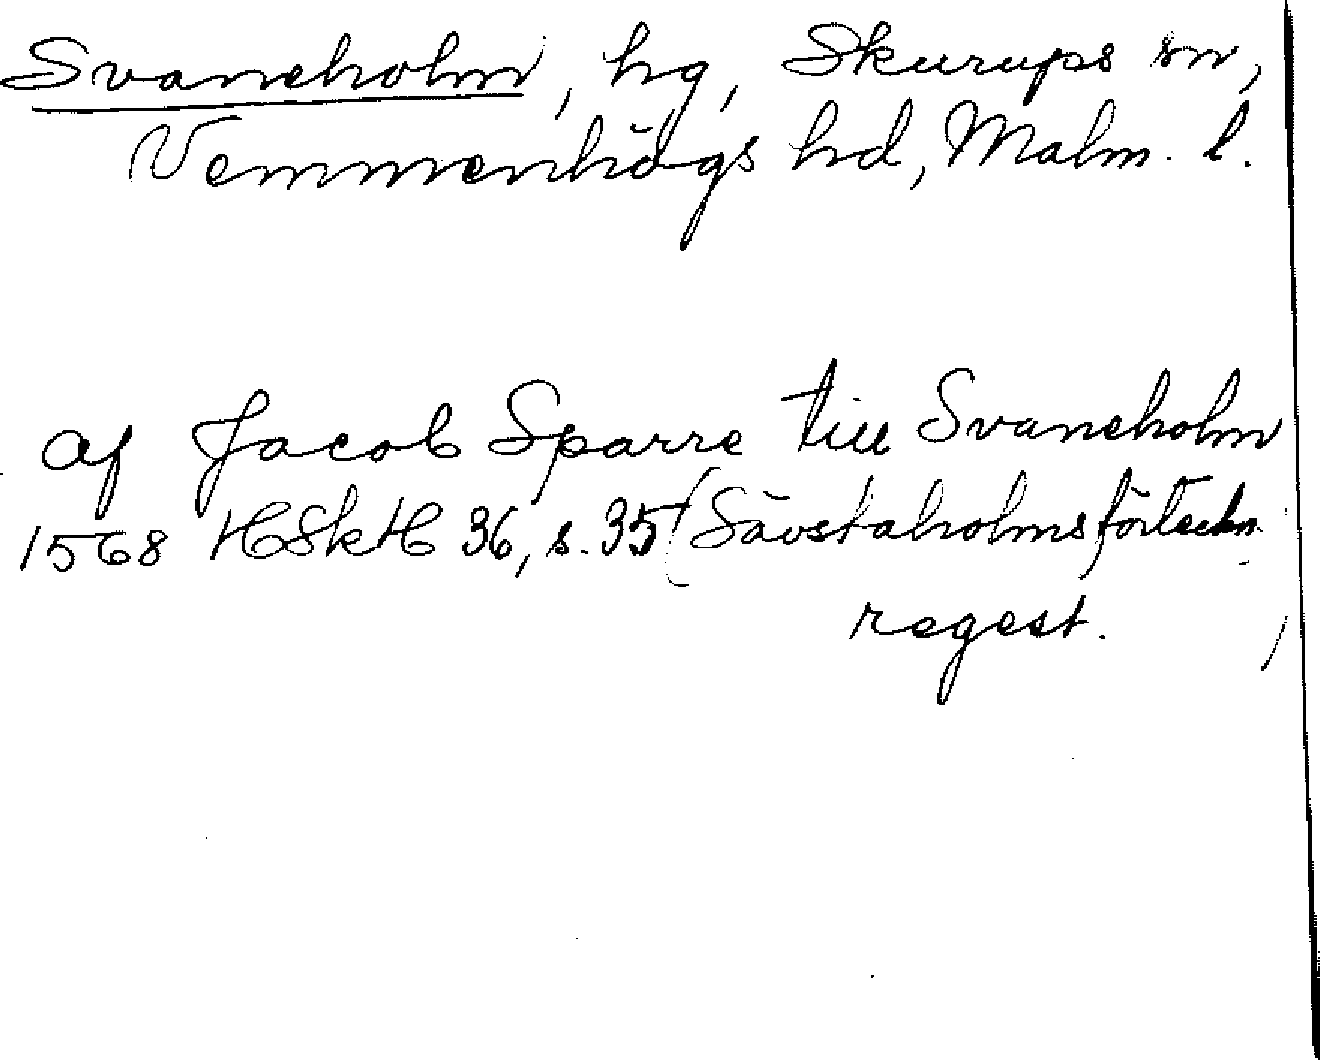 Svaneholm, hg, Skurups sn,
Vemmenhögs hd, Malm. l.
af Jacob Sparre till Svaneholm
1568 HSkH 36, s. 35 (Sävstaholmsförteckn.
regest.)